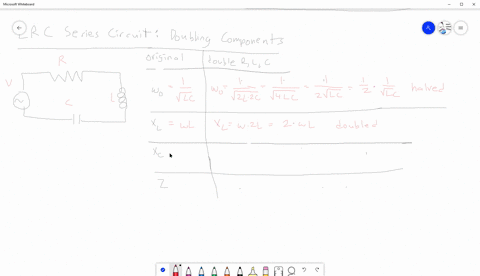 Microsoft Whiteboard
LRC Series Circuit: Doubling Components
original double R, L, C
R
V
L
C
ω₀ = 1/√LC ω₀ = 1/√2L2C = 1/√4LC = 1/2√LC = 1/2 · 1/√LC halved
X_L = ωL X_L = ω·2L = 2·ωL doubled
X_C
Z